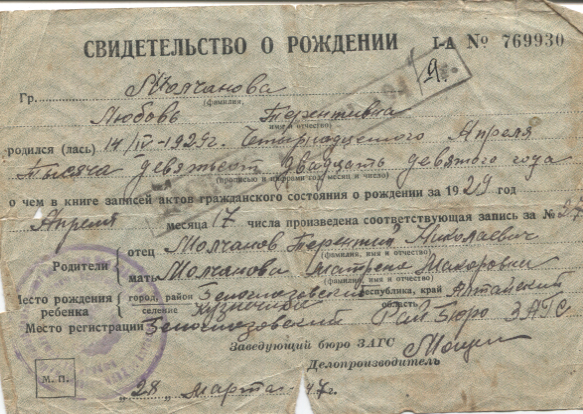 СВИДЕТЕЛЬСТВО О РОЖДЕНИИ I-А № 769930
Гр. Молчанова
(фамилия,
Любовь Терентивна
имя и отчество)
родился (лась) 14/IV-1929г. Четырнадцатого Апреля
Тысяча девятьсот двадцать девятого года
(прописью и цифрами год, месяц и число)
о чем в книге записей актов гражданского состояния о рождении за 1929 год
Апреля месяца 17 числа произведена соответствующая запись за № 27
Родители
отец Молчанов Терентий Николаевич
(фамилия, имя и отчество)
мать Молчанова Матрена
(фамилия, имя и отчество)
Место рождения ребенка
город, район республика, край Алтайский
селение область
Место регистрации Рай Бюро ЗАГС
Заведующий бюро ЗАГС
Делопроизводитель
М. П.
"28" марта 47г.